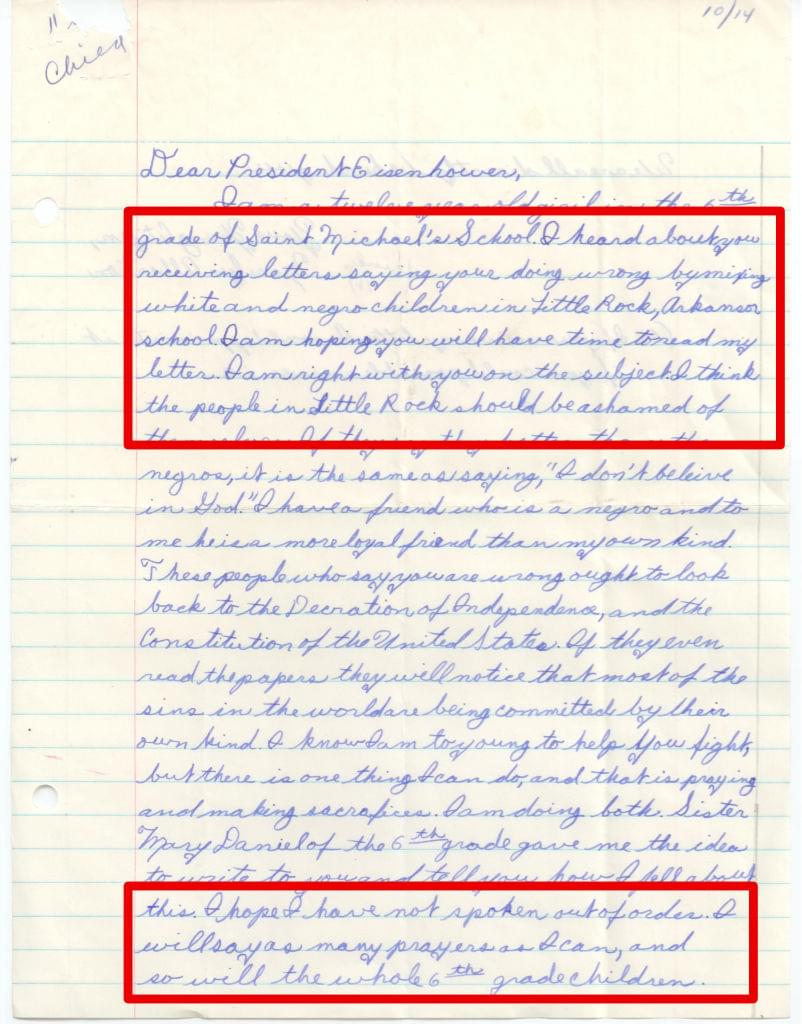 10/14
Dear President Eisenhower,
I am a twelve year old girl in the 6th
grade of Saint Michael's School. I heard about you
receiving letters saying your doing wrong by mixing
white and negro children in Little Rock, Arkansas
school. I am hoping you will have time to read my
letter. I am right with you on the subject. I think
the people in Little Rock should be ashamed of
themselves. If they say they better than the
negros, it is the same as saying, "I don't beleive
in God." I have a friend who is a negro and to
me he is a more loyal friend than my own kind.
These people who say you are wrong ought to look
back to the Decration of Independence, and the
Constitution of the United States. If they even
read the papers they will notice that most of the
sins in the world are being committed by their
own kind. I know I am to young to help you fight,
but there is one thing I can do, and that is praying
and making sacrafices. I am doing both. Sister
Mary Daniel of the 6th grade gave me the idea
to write to you and tell you how I fell about
this. I hope I have not spoken out of order. I
will say as many prayers as I can, and
so will the whole 6th grade children.